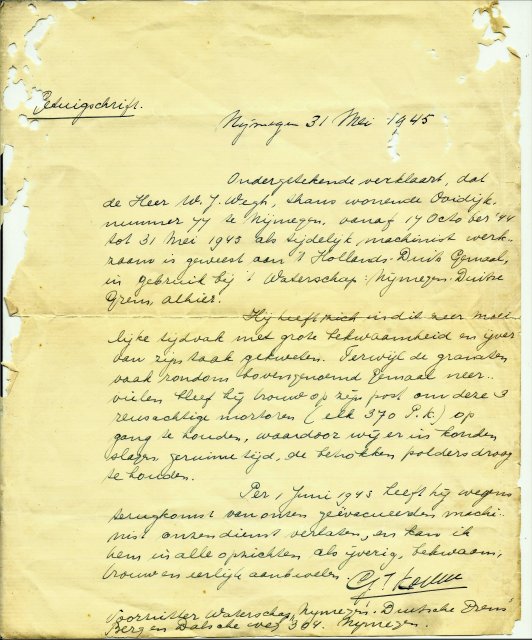 Getuigschrift.
Nijmegen 31 Mei 1945
Ondergetekende verklaart, dat
de Heer W. J. Wegh, thans wonende Ooidijk
nummer 77 te Nijmegen, vanaf 17 October '44
tot 31 Mei 1945 als tijdelijk machinist werk-
zaam is geweest aan 't Hollands-Duits Gemaal,
in gebruik bij 't Waterschap: Nijmegen-Duitse
Grens, alhier.
Hij heeft zich in dit zeer moei-
lijke tijdvak met grote bekwaamheid en ijver
van zijn taak gekweten. Terwijl de granaten
vaak rondom bovengenoemd Gemaal neer-
vielen bleef hij trouw op zijn post om deze 3
reusachtige motoren (elk 370 P.k) op
gang te houden, waardoor wij er in konden
slagen geruime tijd, de betrokken polders droog
te houden.
Per 1 Juni 1945 heeft hij wegens
terugkomst van onzen geëvacueerden machi-
nist onzen dienst verlaten, en kan ik
hem in alle opzichten als ijverig, bekwaam,
trouw en eerlijk aanbevelen.
Voorzitter Waterschap, Nijmegen-Duitsche Grens
Berg en Dalsche weg 304. Nijmegen.